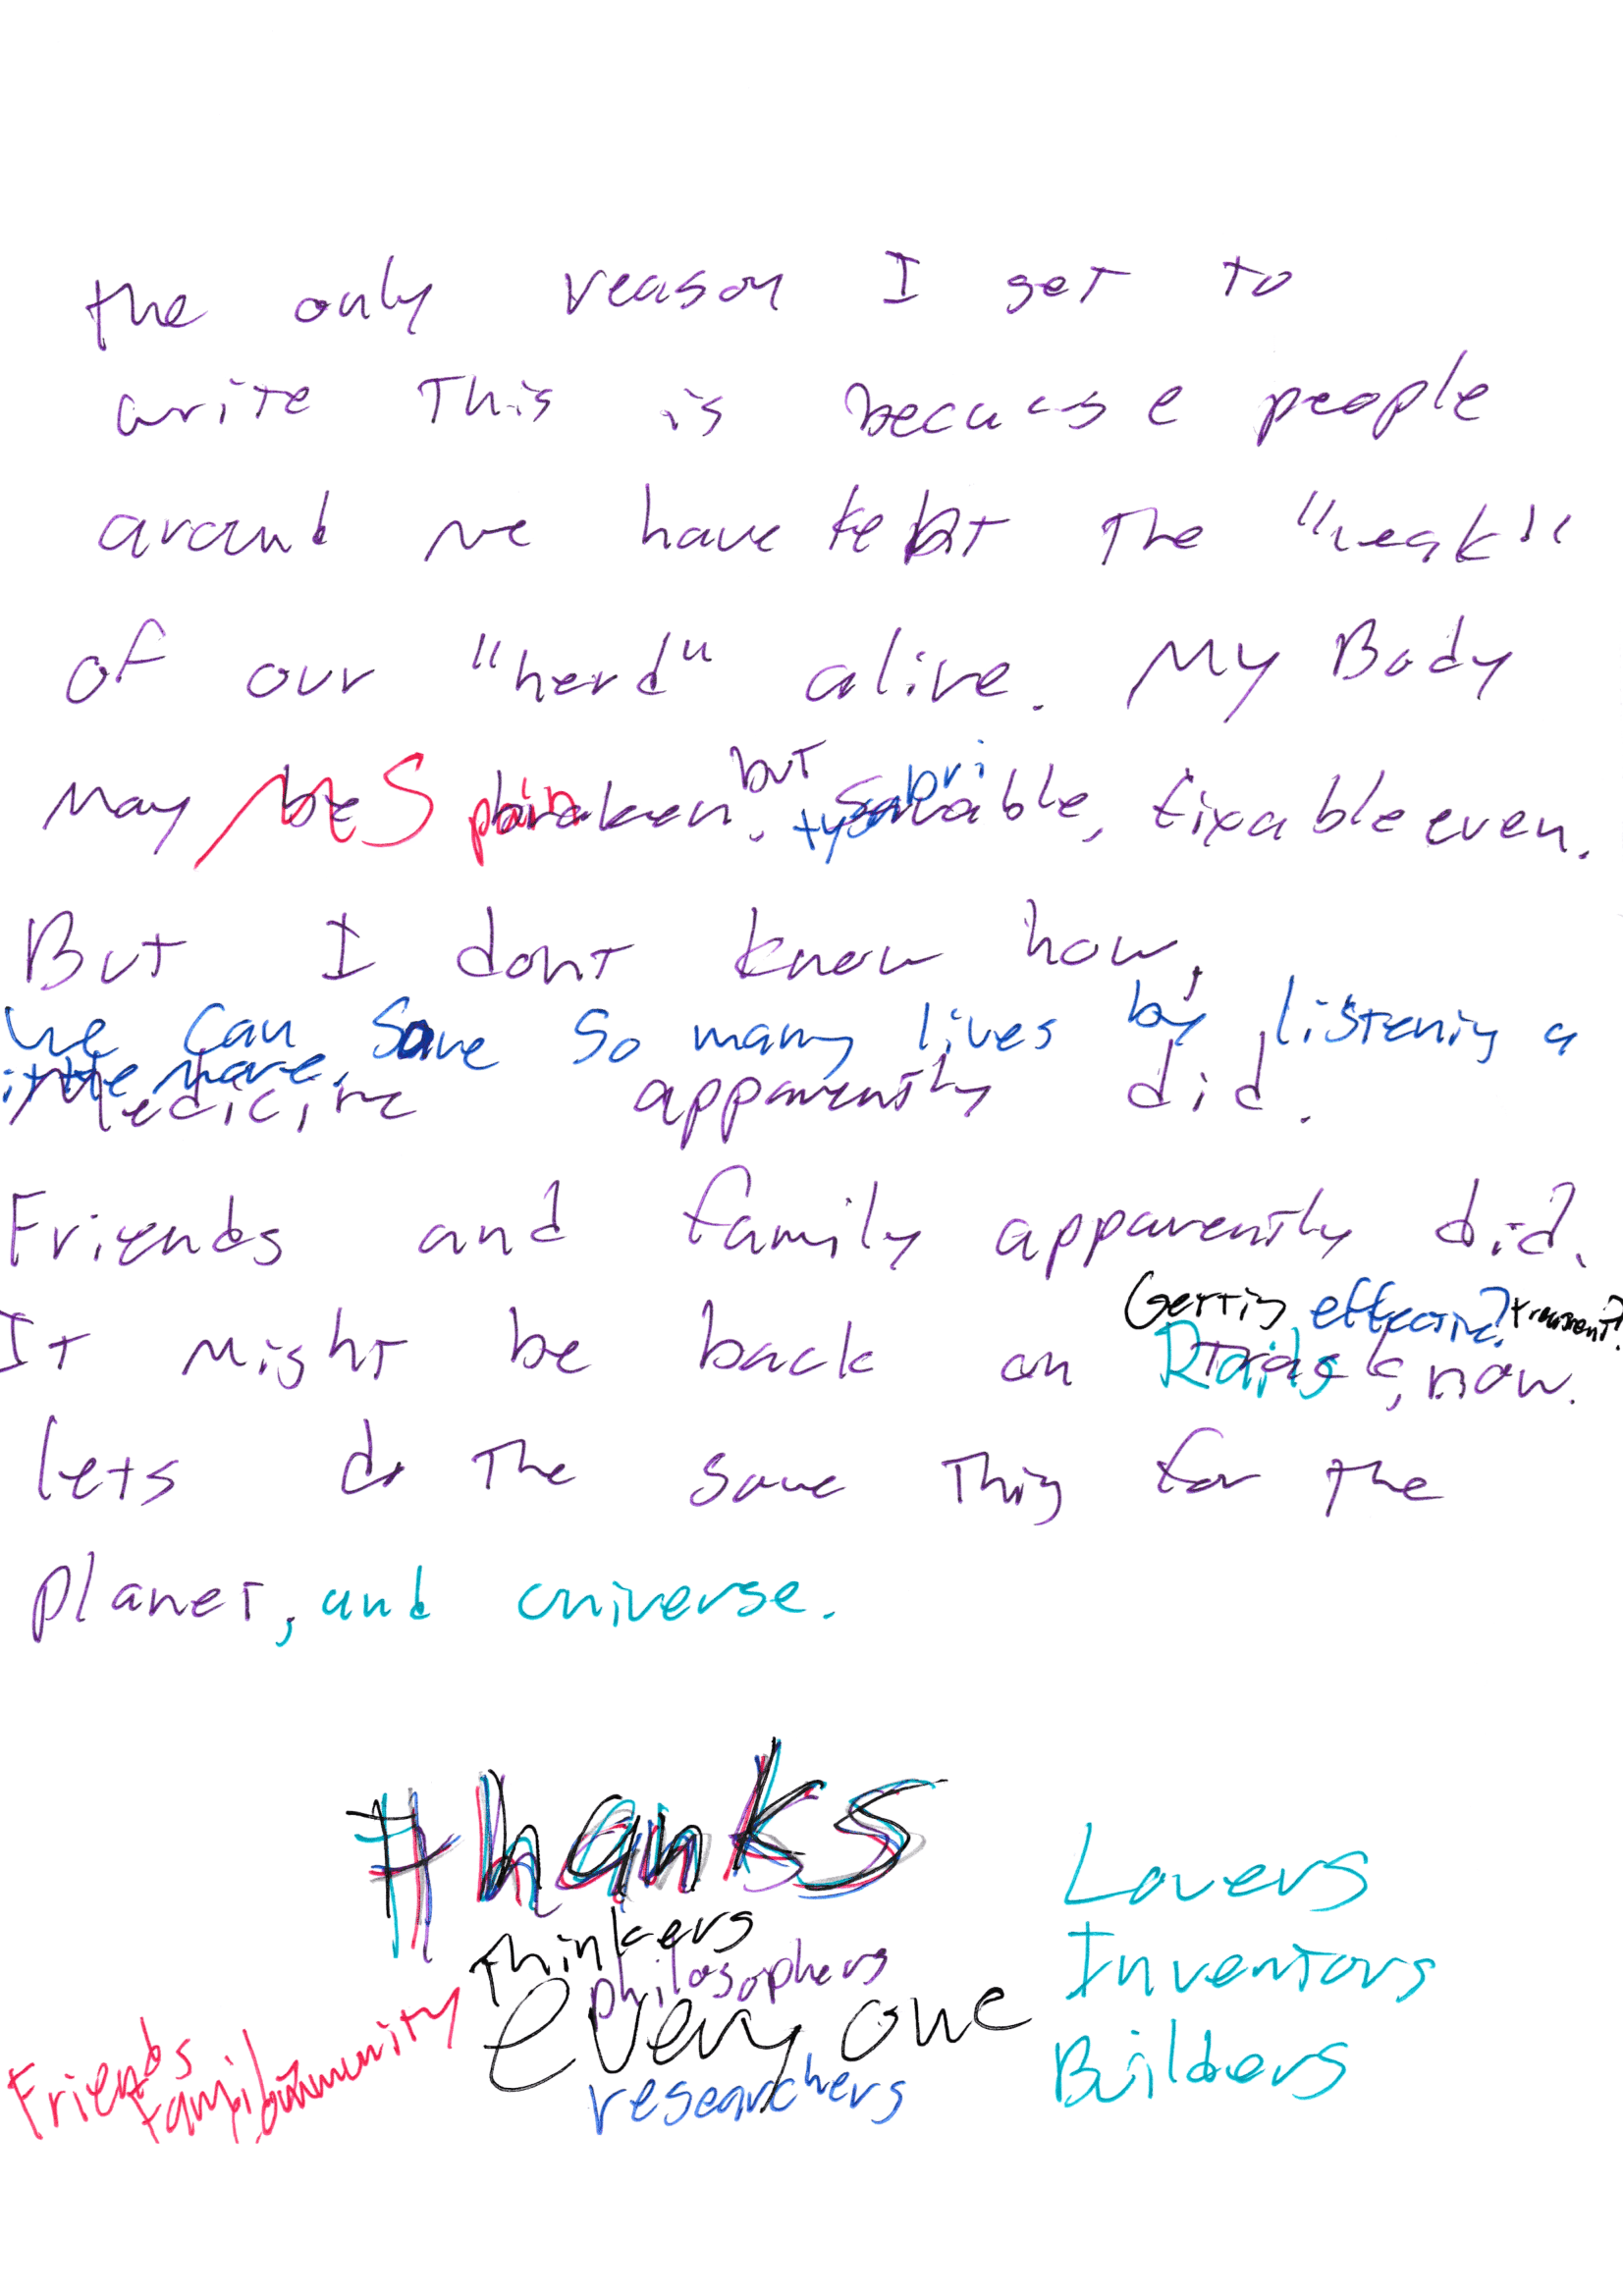 the only reason I get to
write This is because people
around me have kept The "weak"
of our "herd" alive. My Body
may be MS pain broken. but tysabri savable, fixable even.
But I dont know how,
we can save so many lives by listening a
little more.
Medicine apparently did.
Friends and family apparently did.
Getting effective? treatment?
It might be back on Track, now.
lets do The same Thing for the
planet, and universe.
#hanks
thinkers
philosophers
every one
researchers
Friends
family
community
Lovers
Inventors
Builders